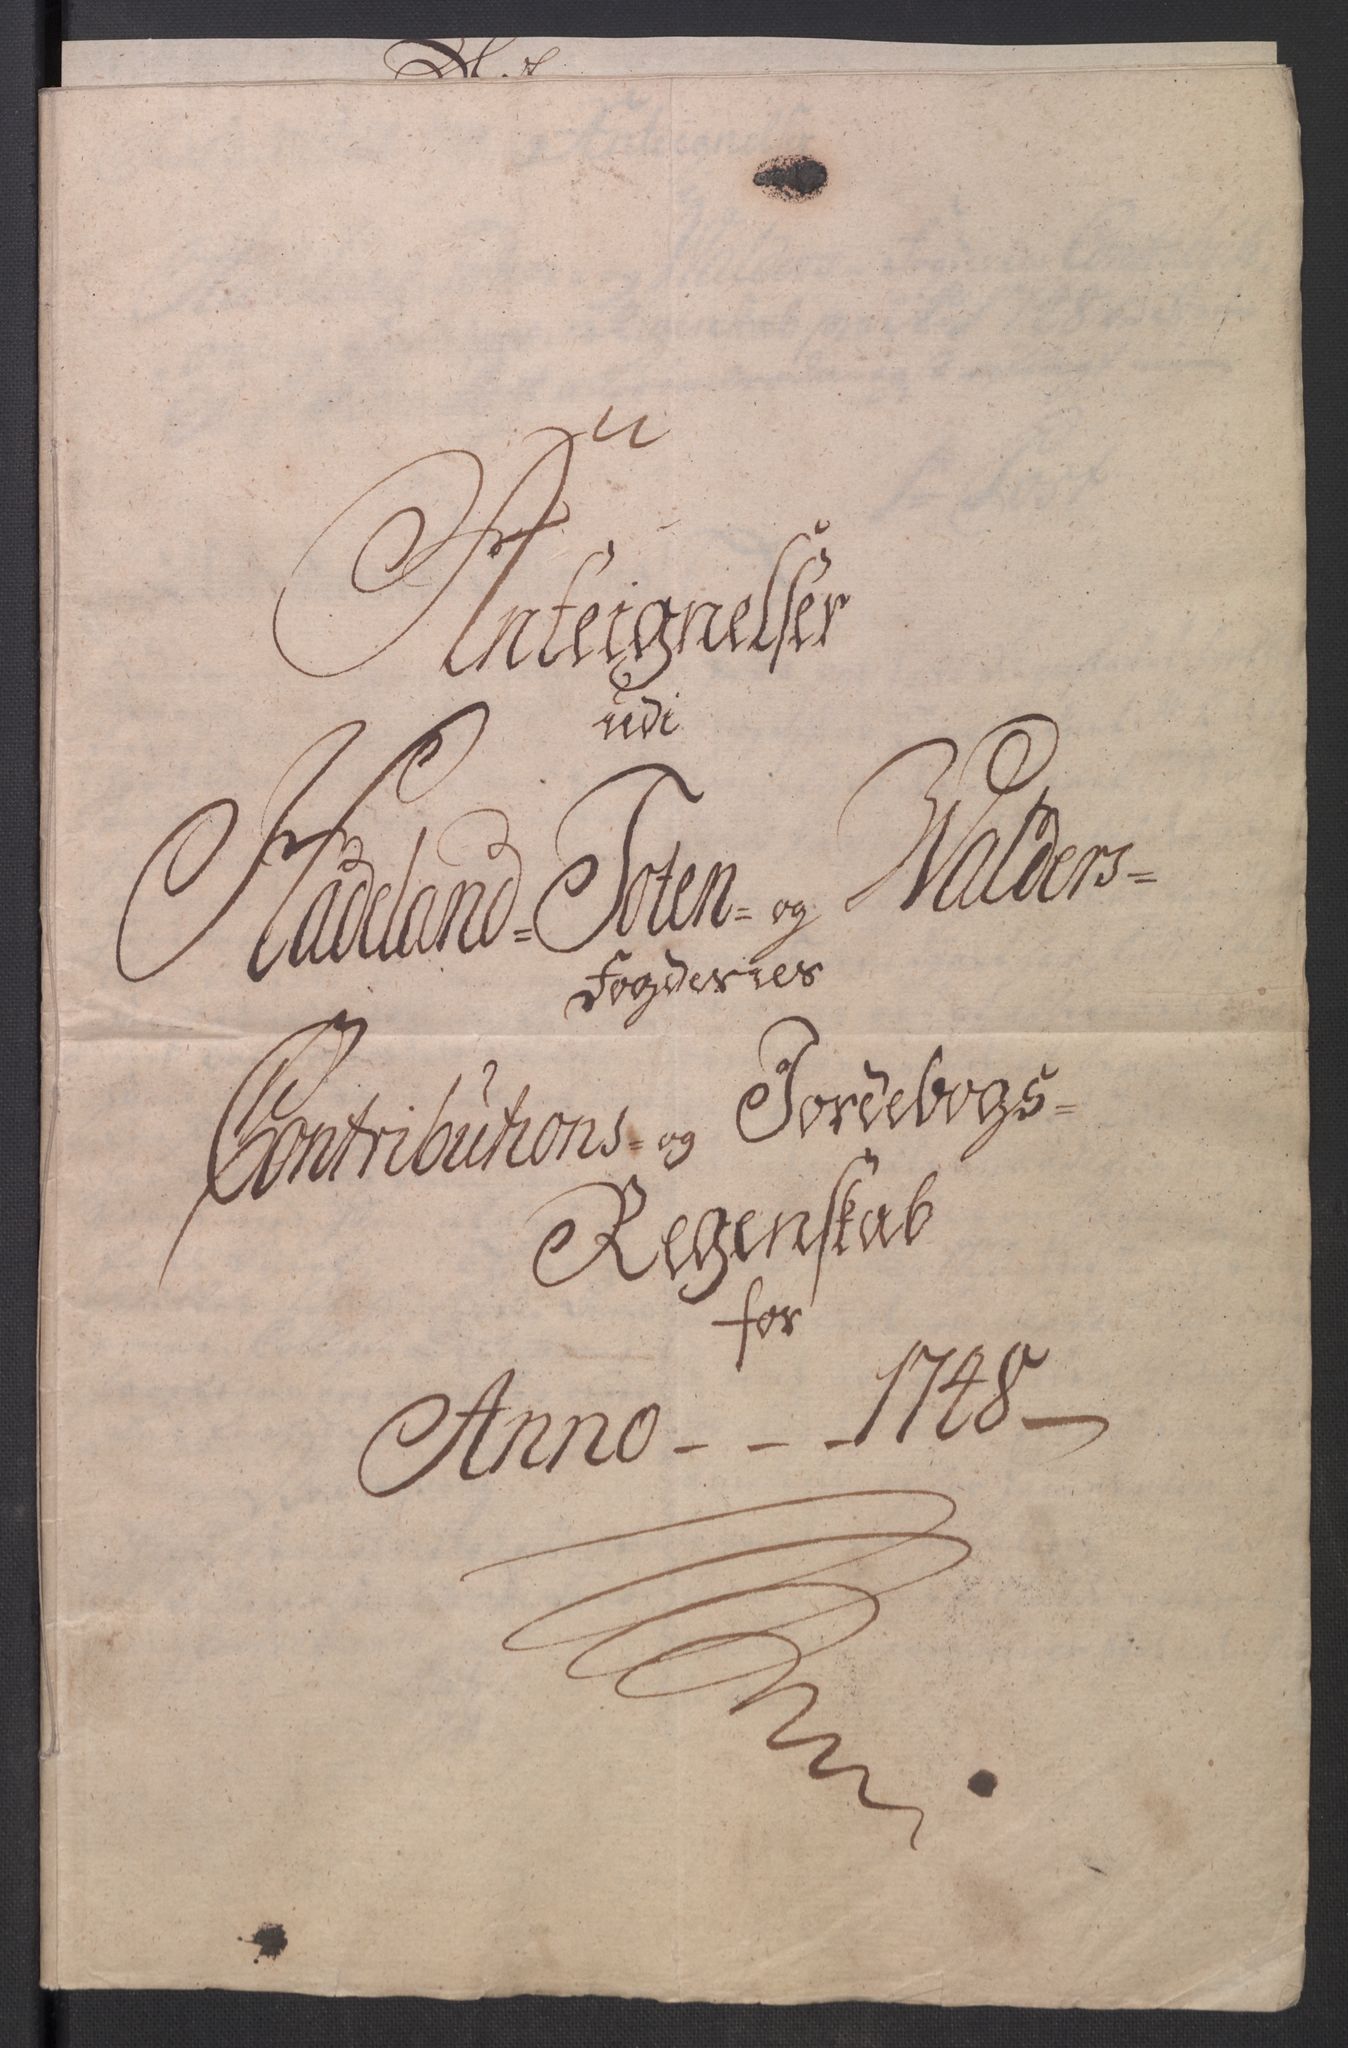 Anteignelser
udi
Hadeland= Toten= og Walders=
Fogderies
Contributions= og Jordebogs=
Regenskab
for
Anno - - - 1748